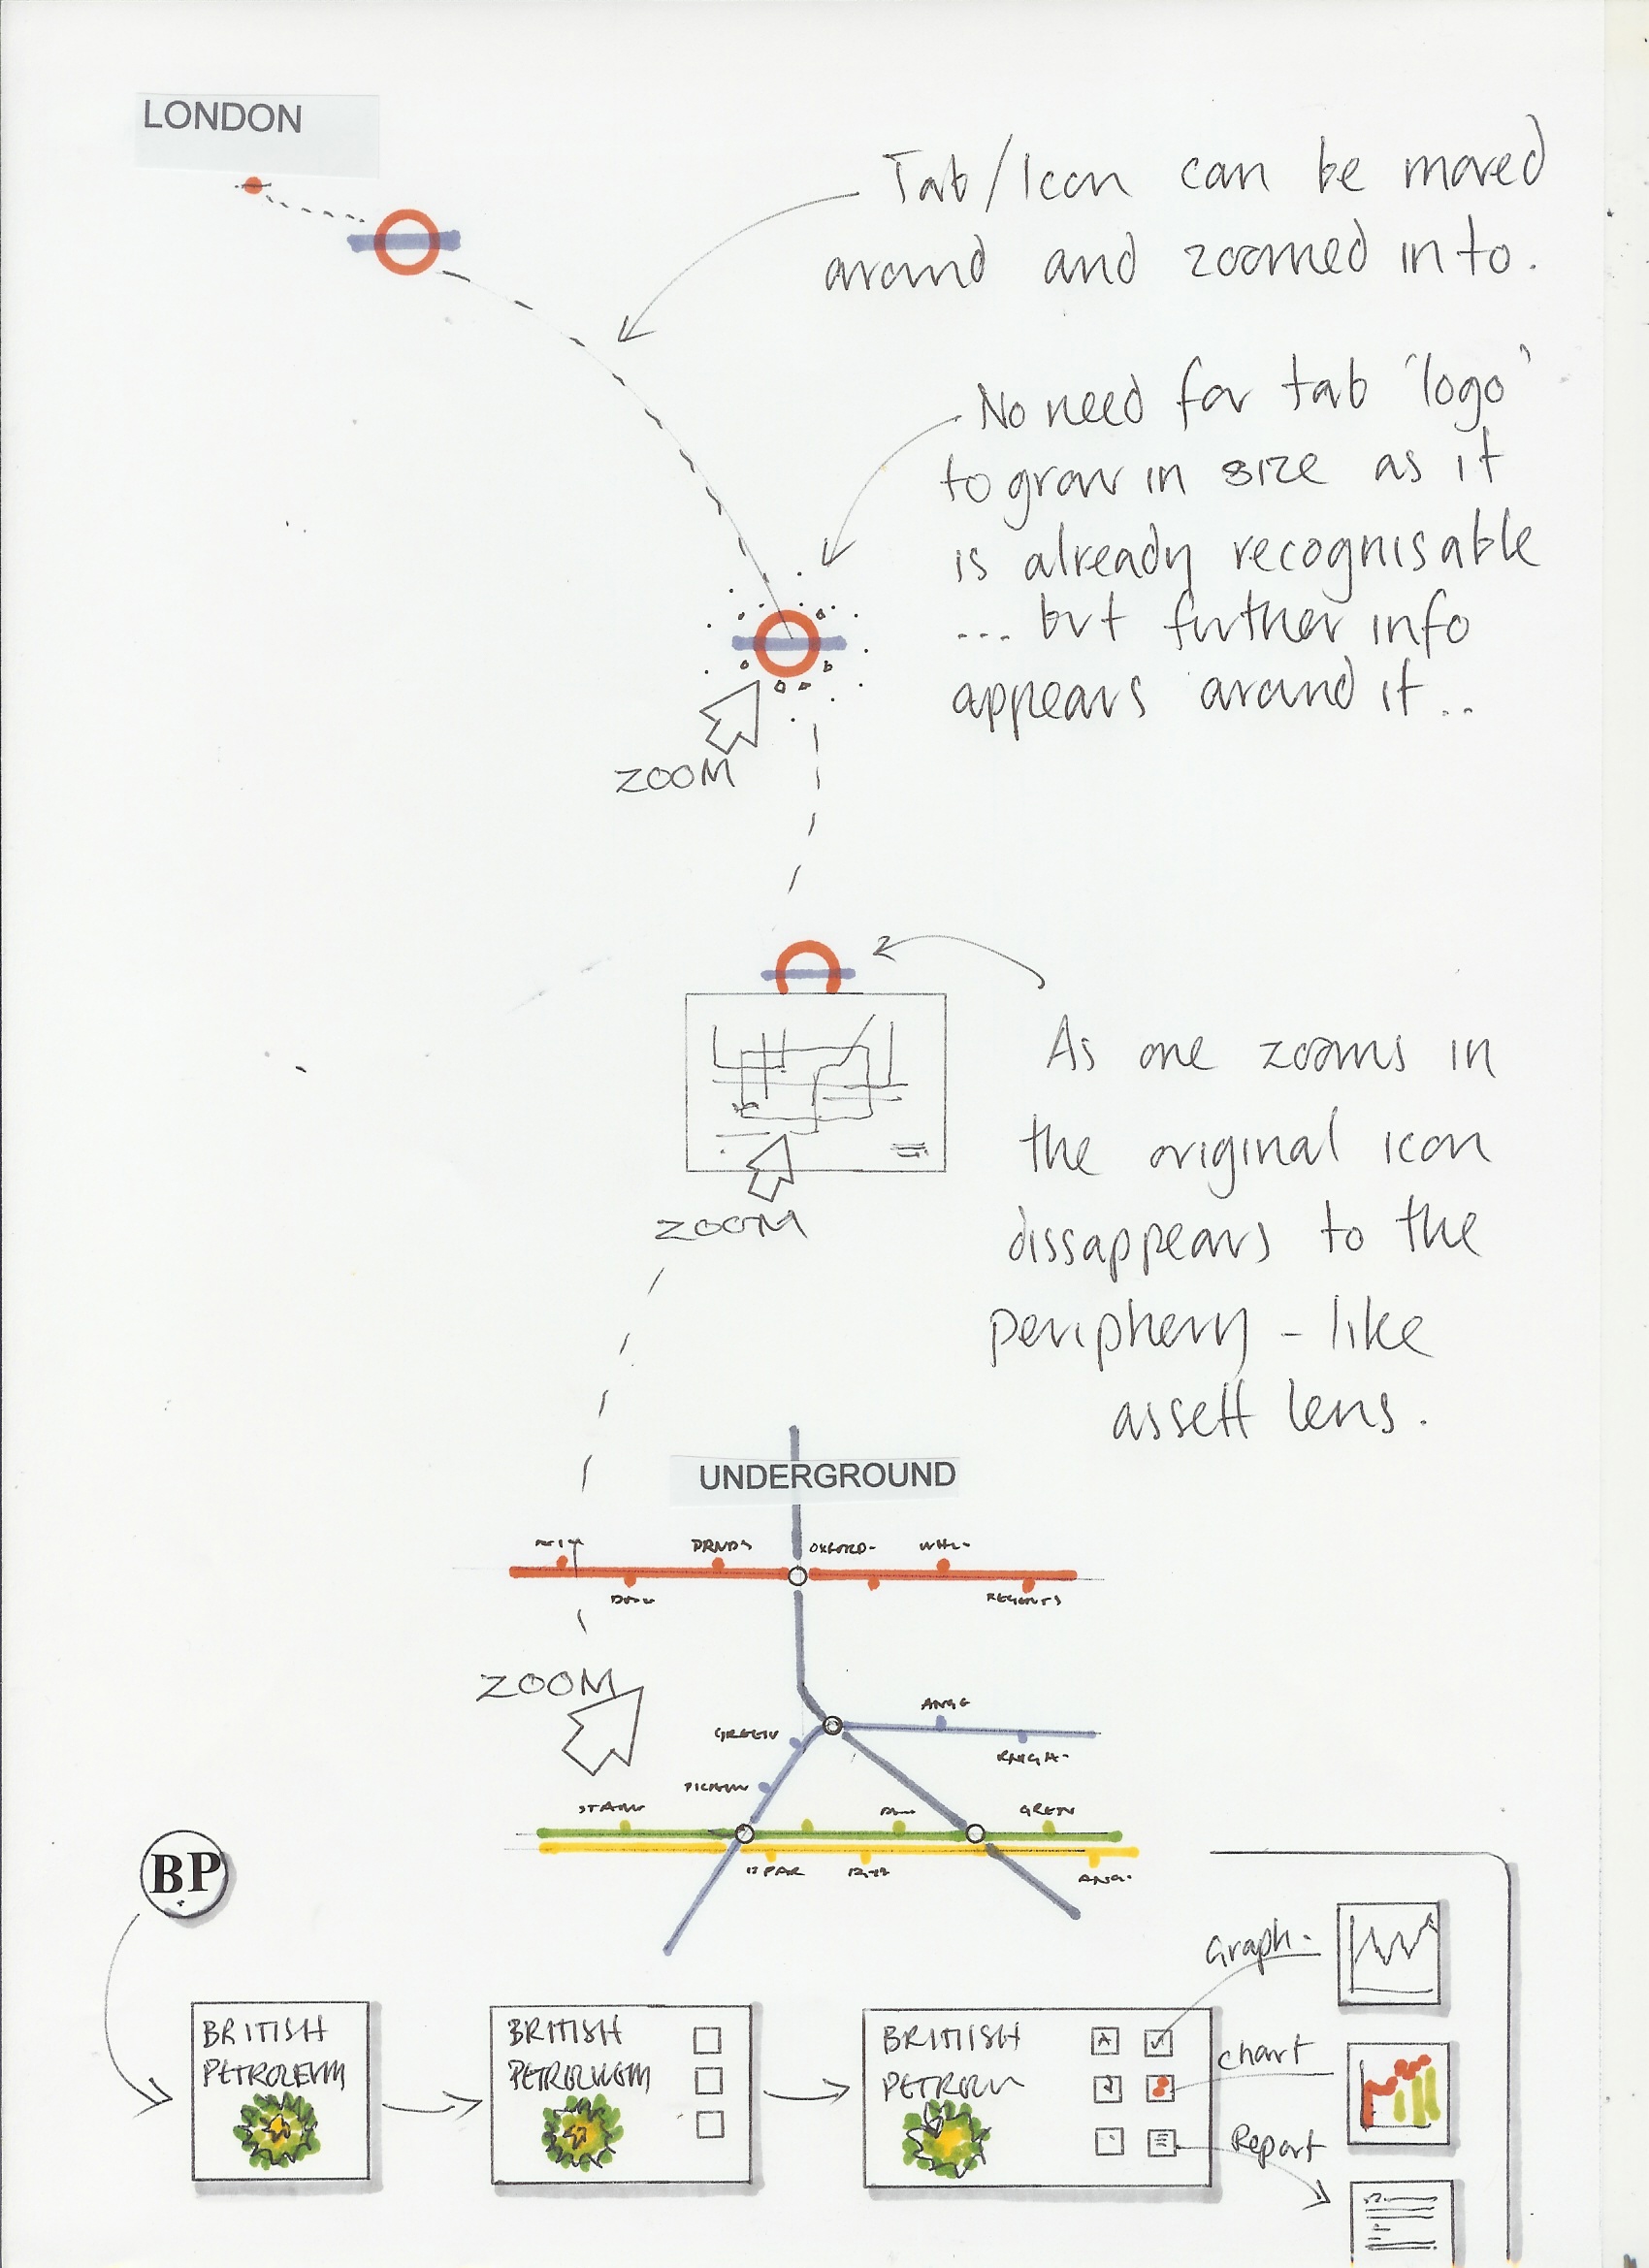 LONDON
Tab/Icon can be moved
around and zoomed into.
No need for tab 'logo'
to grow in size as it
is already recognisable
... but further info
appears around it..
ZOOM
As one zooms in
the original icon
dissappears to the
periphery - like
assett lens.
ZOOM
UNDERGROUND
OXFORD-
REGENTS
ZOOM
ANGE
KNIGH-
GREEN
GREEN
ANG-
BP
Graph.
chart
Report
BRITISH
PETROLEUM
BRITISH
PETROLUEM
BRITISH